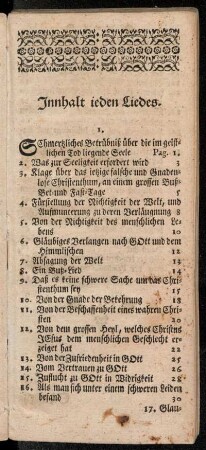 Innhalt ieden Liedes.
1.
SChmerzliches Betrübniß über die im geist-
lichen Tod liegende Seele Pag. 1.
2. Was zur Seeligkeit erfordert wird 3
3. Klage über das ietzige falsche und Gnaden-
lose Christenthum, an einem grossen Buß-
Bet- und Fast-Tage 5
4. Fürstellung der Nichtigkeit der Welt, und
Aufmunterung zu deren Verläugnung 8
5. Von der Nichtigkeit des menschlichen Le-
bens 10
6. Gläubiges Verlangen nach GOtt und dem
Himmlischen 12
7. Absagung der Welt 13
8. Ein Buß-Lied 14
9. Daß es keine schwere Sache um das Chri-
stenthum sey 15
10. Von der Gnade der Bekehrung 18
11. Von der Beschaffenheit eines wahren Chri-
sten 20
12. Von dem grossen Heyl, welches Christus
JEsus dem menschlichen Geschlecht er-
zeiget hat 22
13. Von der Zufriedenheit in GOtt 25
14. Vom Vertrauen zu GOtt 26
15. Zuflucht zu GOtt in Widrigkeit 28
16. Als man sich unter einem schweren Leiden
befand 30
17. Glau-